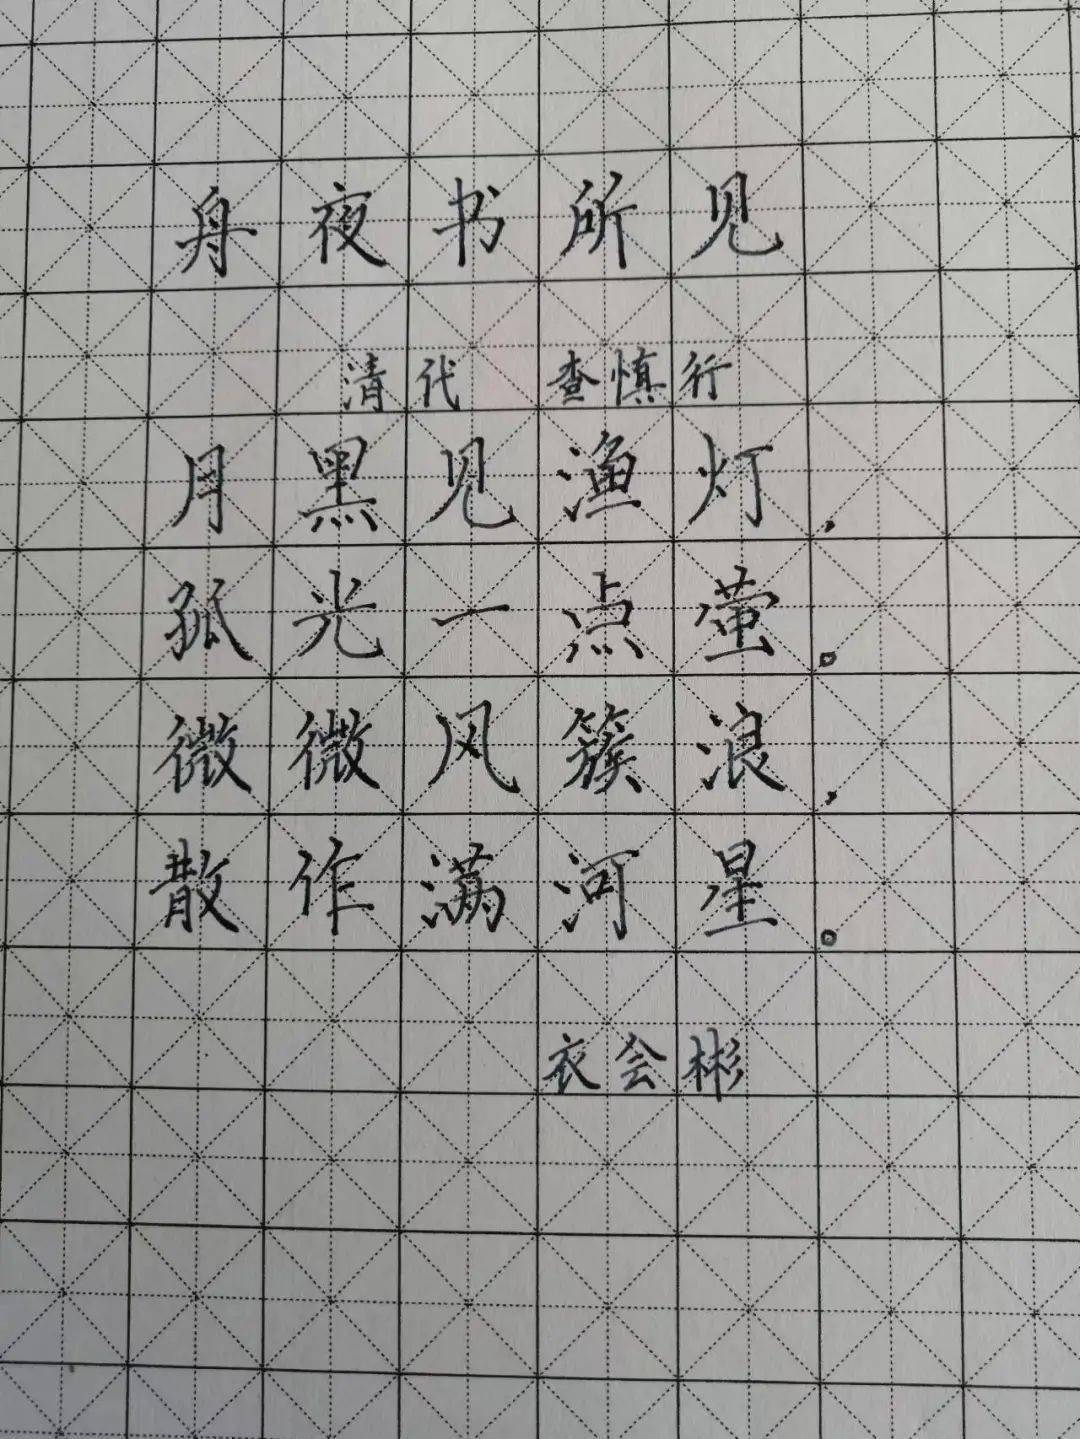 舟夜书所见
清代 查慎行
月黑见渔灯，
孤光一点萤。
微微风簇浪，
散作满河星。
衣会彬